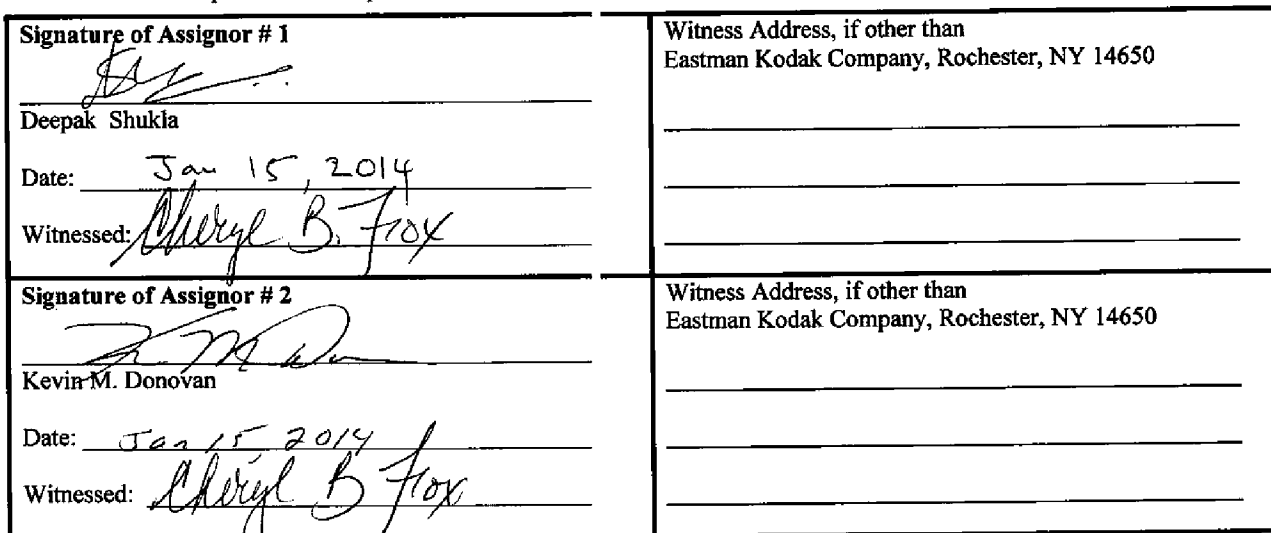 Signature of Assignor # 1
Deepak Shukla
Date: Jan 15, 2014
Witnessed: Cheryl B. Fox
Witness Address, if other than
Eastman Kodak Company, Rochester, NY 14650
Signature of Assignor # 2
Kevin M. Donovan
Date: Jan 15, 2014
Witnessed: Cheryl B Fox
Witness Address, if other than
Eastman Kodak Company, Rochester, NY 14650